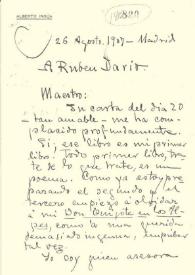 ALBERTO INSÚA
26 Agosto, 1907 - Madrid
A Ruben Dario
Maestro:
Su carta del dia 20
- tan amable - me ha com-
placido profundamente.
Sí; ese libro es mi primer
libro. Todo primer libro, tra-
te de lo que trate, es un
poema. Como ya estoy pre-
parando el segundo y el
tercero empiezo á olvidar
á mi Don Quijote en los Al-
pes, como á una querida
demasiado ingenua, impulsiva
tal vez.
Le doy quien asesora